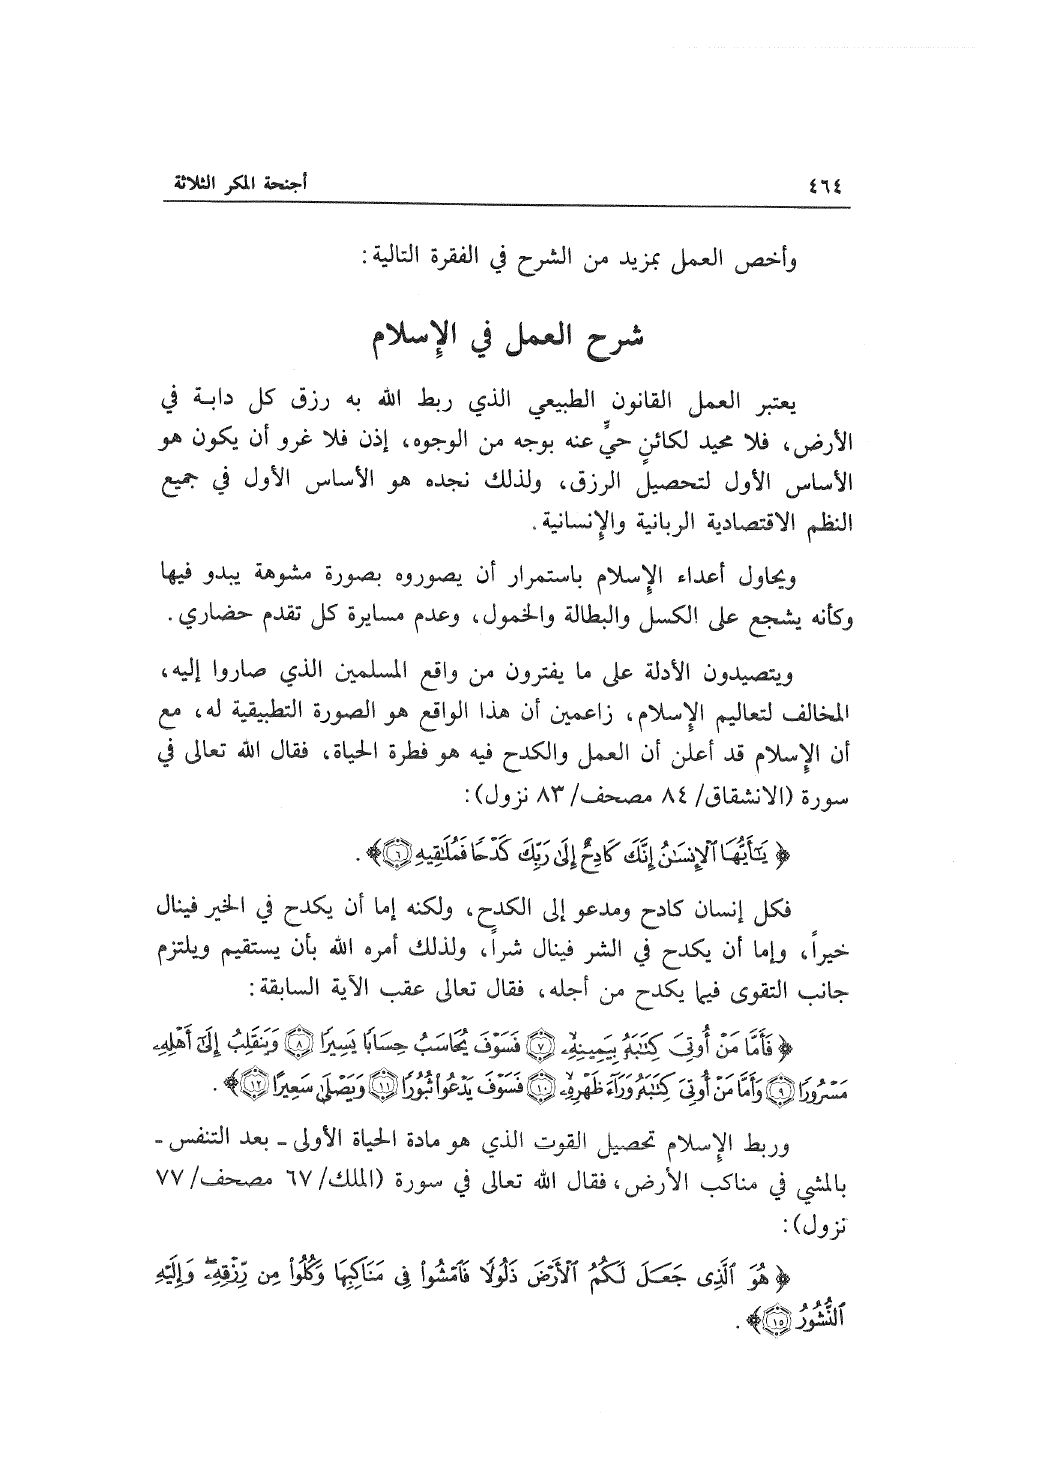 ٤٦٤
أجنحة المكر الثلاثة
وأخص العمل بمزيد من الشرح في الفقرة التالية:
شرح العمل في الإسلام
يعتبر العمل القانون الطبيعي الذي ربط الله به رزق كل دابة في
الأرض، فلا محيد لكائنٍ حيٍّ عنه بوجه من الوجوه، إذن فلا غرو أن يكون هو
الأساس الأول لتحصيل الرزق، ولذلك نجده هو الأساس الأول في جميع
النظم الاقتصادية الربانية والإنسانية.
ويحاول أعداء الإسلام باستمرار أن يصوروه بصورة مشوهة يبدو فيها
وكأنه يشجع على الكسل والبطالة والخمول، وعدم مسايرة كل تقدم حضاري.
ويتصيدون الأدلة على ما يفترون من واقع المسلمين الذي صاروا إليه،
المخالف لتعاليم الإسلام، زاعمين أن هذا الواقع هو الصورة التطبيقية له، مع
أن الإسلام قد أعلن أن العمل والكدح فيه هو فطرة الحياة، فقال الله تعالى في
سورة (الانشقاق/ ٨٤ مصحف/ ٨٣ نزول):
﴿ يَٰٓأَيُّهَا ٱلْإِنسَٰنُ إِنَّكَ كَادِحٌ إِلَىٰ رَبِّكَ كَدْحًا فَمُلَٰقِيهِ ۝٦﴾.
فكل إنسان كادح ومدعو إلى الكدح، ولكنه إما أن يكدح في الخير فينال
خيراً، وإما أن يكدح في الشر فينال شراً، ولذلك أمره الله بأن يستقيم ويلتزم
جانب التقوى فيما يكدح من أجله، فقال تعالى عقب الآية السابقة:
﴿ فَأَمَّا مَنْ أُوتِىَ كِتَٰبَهُۥ بِيَمِينِهِۦ ۝٧ فَسَوْفَ يُحَاسَبُ حِسَابًا يَسِيرًا ۝٨ وَيَنقَلِبُ إِلَىٰٓ أَهْلِهِۦ
مَسْرُورًا ۝٩ وَأَمَّا مَنْ أُوتِىَ كِتَٰبَهُۥ وَرَآءَ ظَهْرِهِۦ ۝١٠ فَسَوْفَ يَدْعُوا۟ ثُبُورًا ۝١١ وَيَصْلَىٰ سَعِيرًا ۝١٢﴾.
وربط الإسلام تحصيل القوت الذي هو مادة الحياة الأولى ـ بعد التنفس ـ
بالمشي في مناكب الأرض، فقال الله تعالى في سورة (الملك/ ٦٧ مصحف/ ٧٧
نزول):
﴿ هُوَ ٱلَّذِى جَعَلَ لَكُمُ ٱلْأَرْضَ ذَلُولًا فَٱمْشُوا۟ فِى مَنَاكِبِهَا وَكُلُوا۟ مِن رِّزْقِهِۦ ۖ وَإِلَيْهِ
ٱلنُّشُورُ ۝١٥﴾.